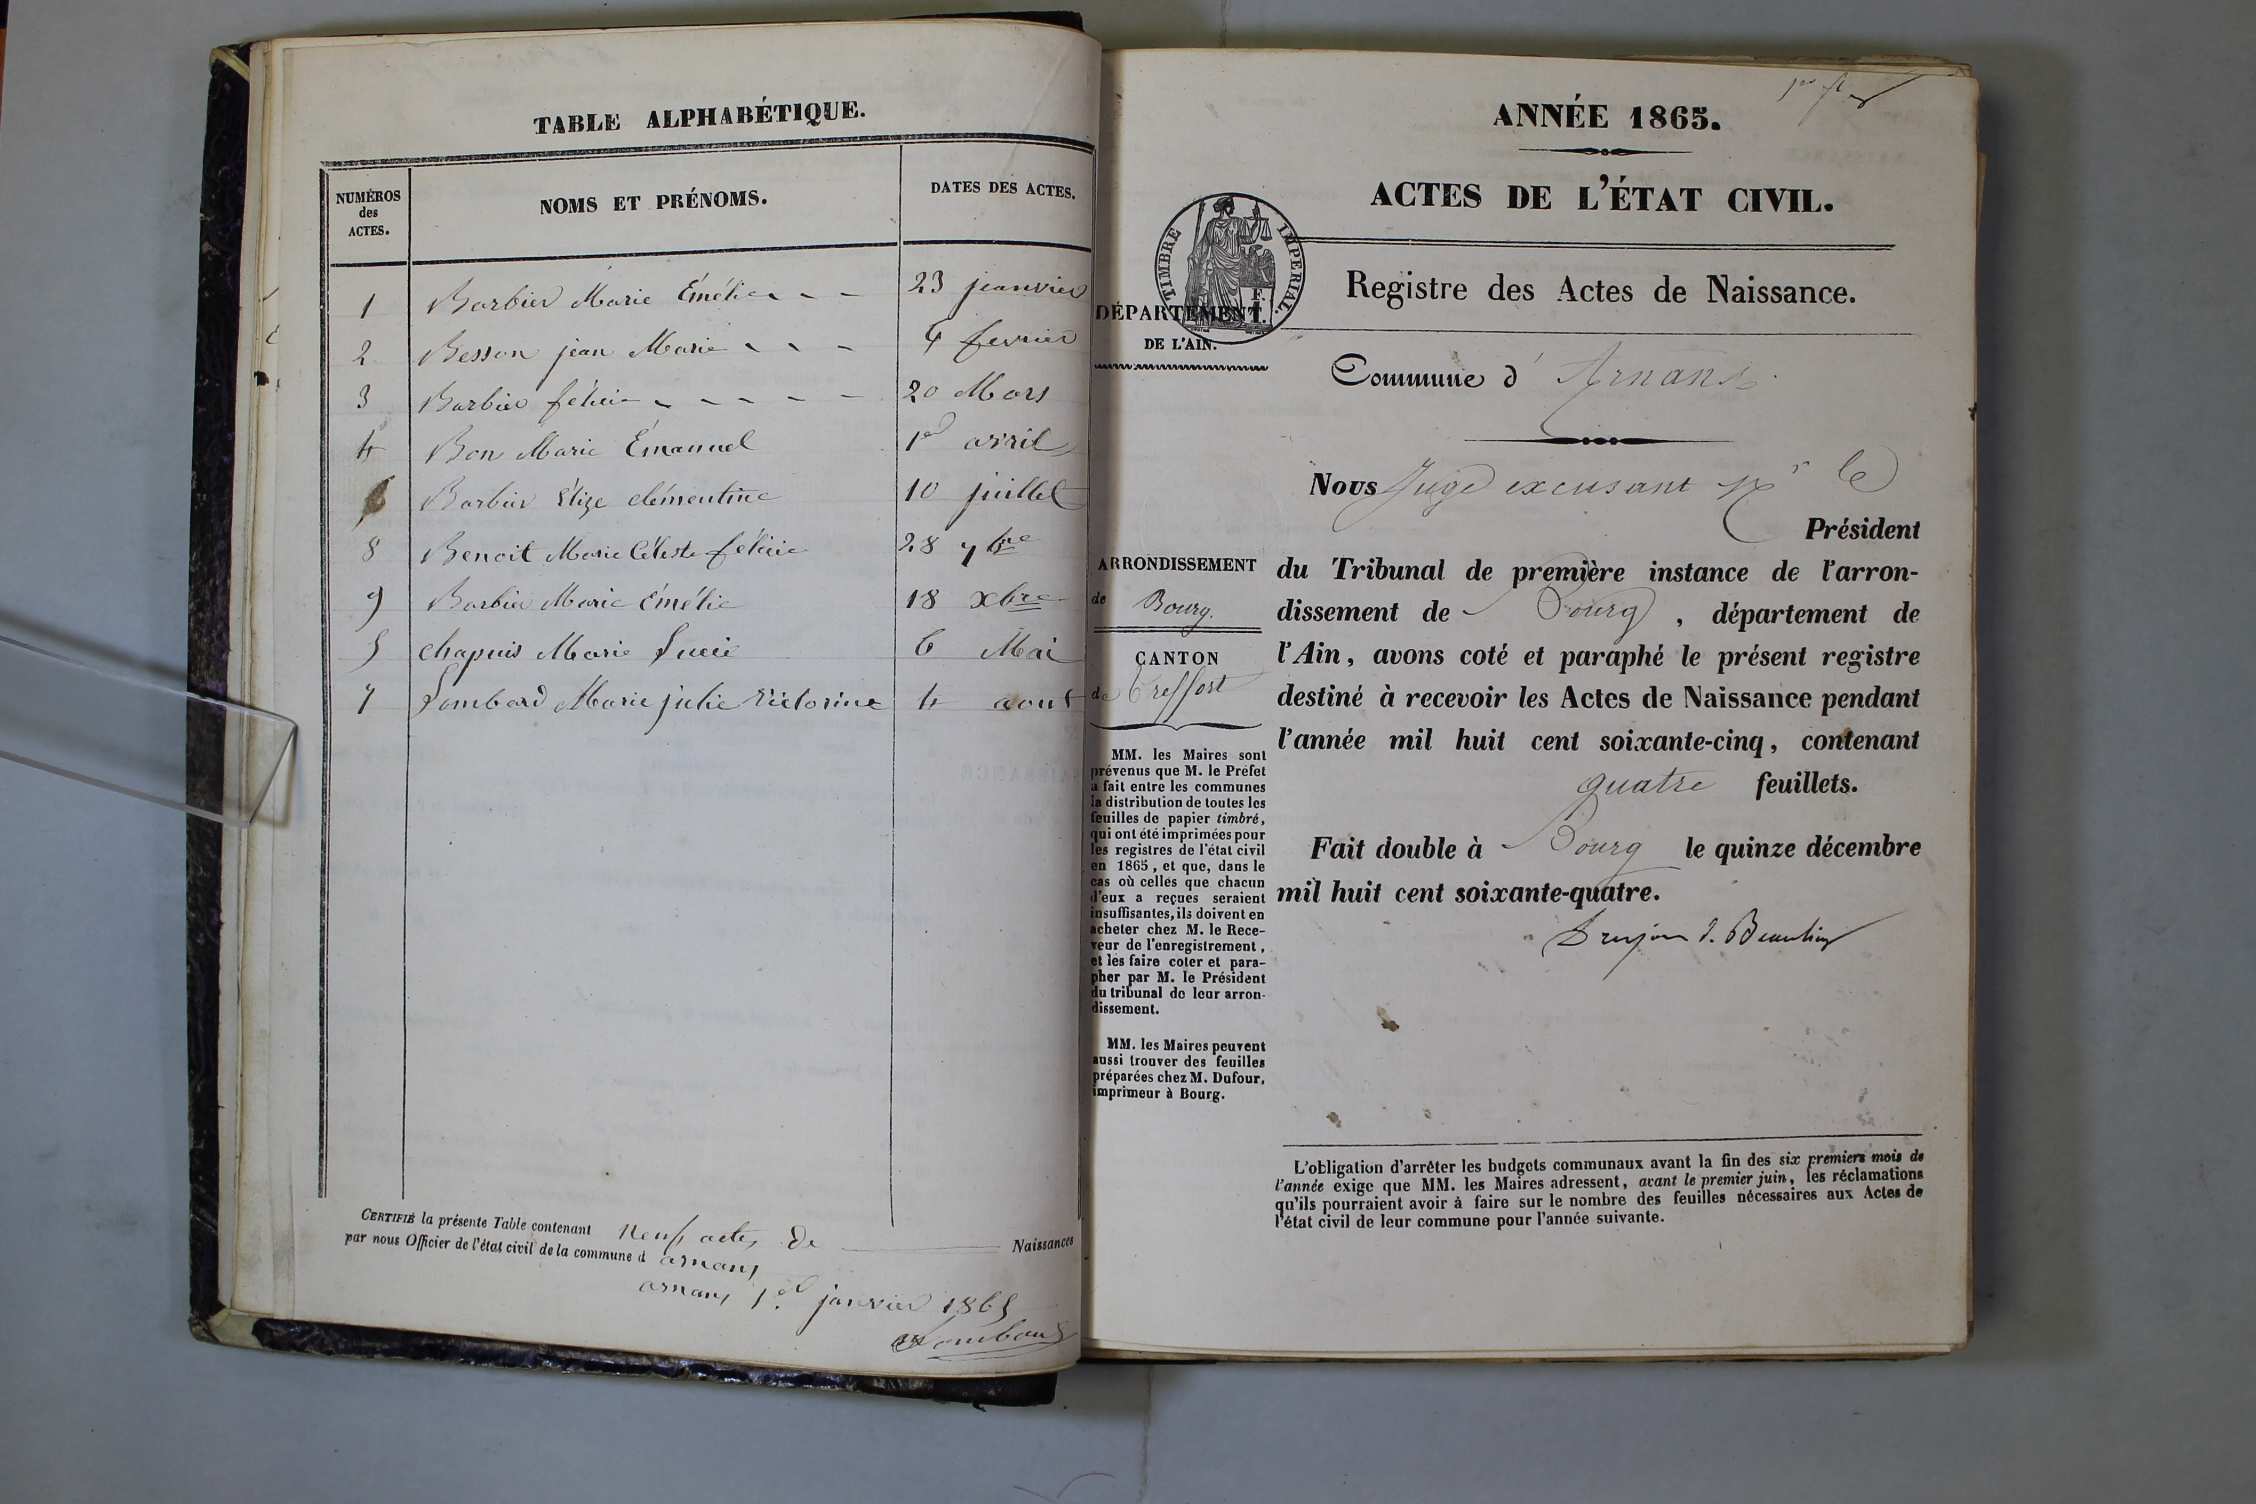 TABLE ALPHABÉTIQUE.
NUMÉROS
des
ACTES.
NOMS ET PRÉNOMS.
DATES DES ACTES.
1 Barbier Marie Émélie 23 jeanvier
2 Besson jean Marie 4 fevrier
3 Barbier félicie 20 Mars
4 Bon Marie Émanuel 1er avril
Barbier Élize clémentine 10 juillet
8 Benoit Marie Céleste félicie 28 7bre
9 Barbier Marie Émélie 18 Xbre
5 chapuis Marie Lucie 6 Mai
7 Lombard Marie julie Victorine 4 aout
CERTIFIÉ la présente Table contenant Neuf actes de Naissances
par nous Officier de l'état civil de la commune d arnans
arnans 1er janvier 1865
ANNÉE 1865.
ACTES DE L'ÉTAT CIVIL.
TIMBRE IMPERIAL.
1 F.
Registre des Actes de Naissance.
DÉPARTEMENT.
DE L'AIN.
Commune d' Arnans
ARRONDISSEMENT
de Bourg.
CANTON
de Treffort
MM. les Maires sont
prévenus que M. le Préfet
a fait entre les communes
la distribution de toutes les
feuilles de papier timbré,
qui ont été imprimées pour
les registres de l'état civil
en 1865, et que, dans le
cas où celles que chacun
d'eux a reçues seraient
insuffisantes, ils doivent en
acheter chez M. le Rece-
veur de l'enregistrement,
et les faire coter et para-
pher par M. le Président
du tribunal de leur arron-
dissement.
MM. les Maires peuvent
aussi trouver des feuilles
préparées chez M. Dufour,
imprimeur à Bourg.
Nous Juge excusant Mr le
Président
du Tribunal de première instance de l'arron-
dissement de Bourg, département de
l'Ain, avons coté et paraphé le présent registre
destiné à recevoir les Actes de Naissance pendant
l'année mil huit cent soixante-cinq, contenant
quatre feuillets.
Fait double à Bourg le quinze décembre
mil huit cent soixante-quatre.
L'obligation d'arrêter les budgets communaux avant la fin des six premiers mois de
l'année exige que MM. les Maires adressent, avant le premier juin, les réclamations
qu'ils pourraient avoir à faire sur le nombre des feuilles nécessaires aux Actes de
l'état civil de leur commune pour l'année suivante.